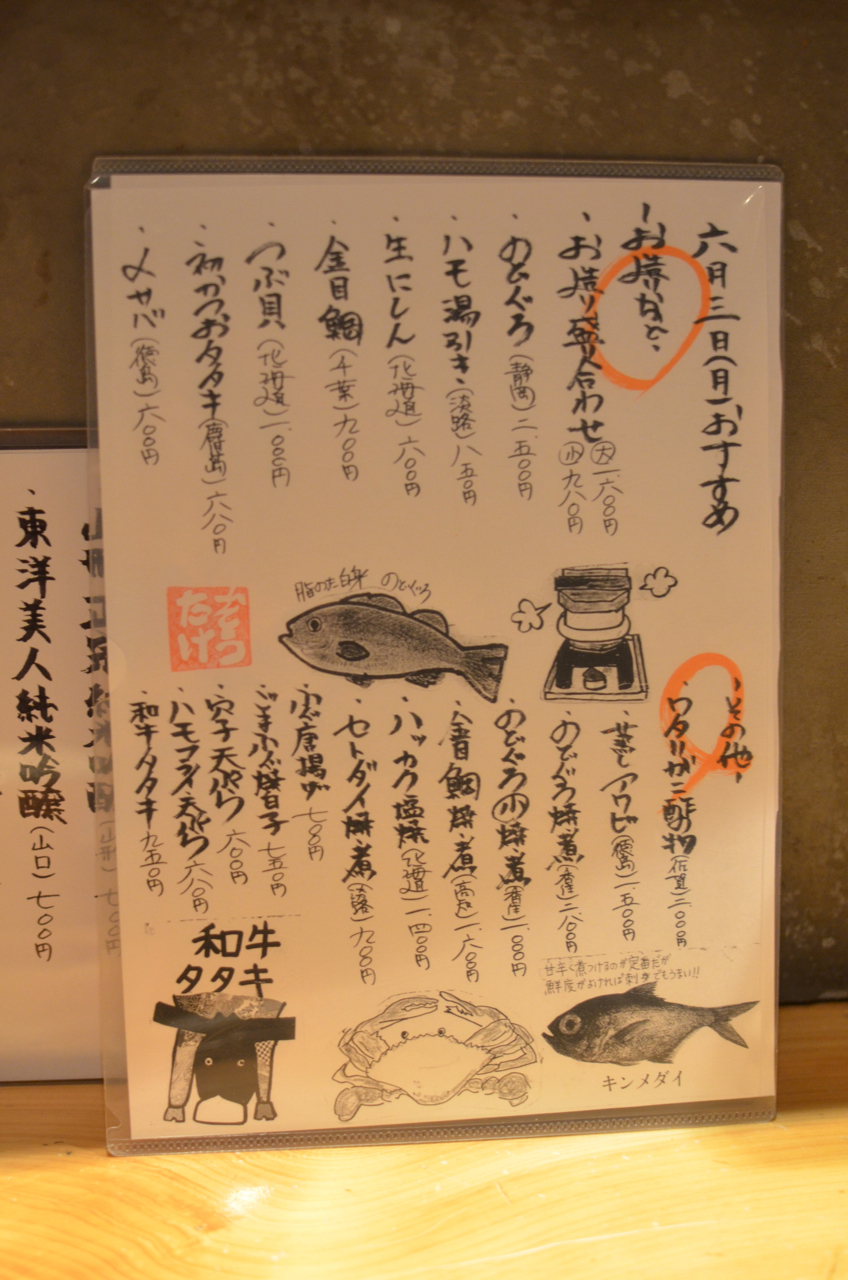 六月三日(月)おすすめ
お造りなど
・お造り盛り合わせ 大一、六〇〇円 小九八〇円
・のどぐろ(静岡)二、五〇〇円
・ハモ湯引き(淡路)八五〇円
・生にしん(北海道)六〇〇円
・金目鯛(千葉)九〇〇円
・つぶ貝(北海道)一、〇〇〇円
・初かつおタタキ(鹿児島)六八〇円
・〆サバ(徳島)六〇〇円
脂のった白身 のどぐろ
たけ
その他
・ワタリガニ酢物(佐賀)二、〇〇〇円
・蒸しアワビ(徳島)一、五〇〇円
・のどぐろ焼・煮 二、八〇〇円
・のどぐろ小焼・煮 一、〇〇〇円
・金目鯛焼・煮(高知)一、六〇〇円
・ハッカク塩焼(北海道)一、四〇〇円
・セトダイ焼・煮(淡路)九〇〇円
・ふぐ唐揚げ 七〇〇円
・ごまふぐ焼白子 七五〇円
・穴子天ぷら 六〇〇円
・ハモフライ天ぷら 六八〇円
・和牛タタキ 九五〇円
和牛
タタキ
甘辛く煮つけるのが定番だが
鮮度がよければ刺身でもうまい!!
キンメダイ
・東洋美人純米吟醸(山口)七〇〇円